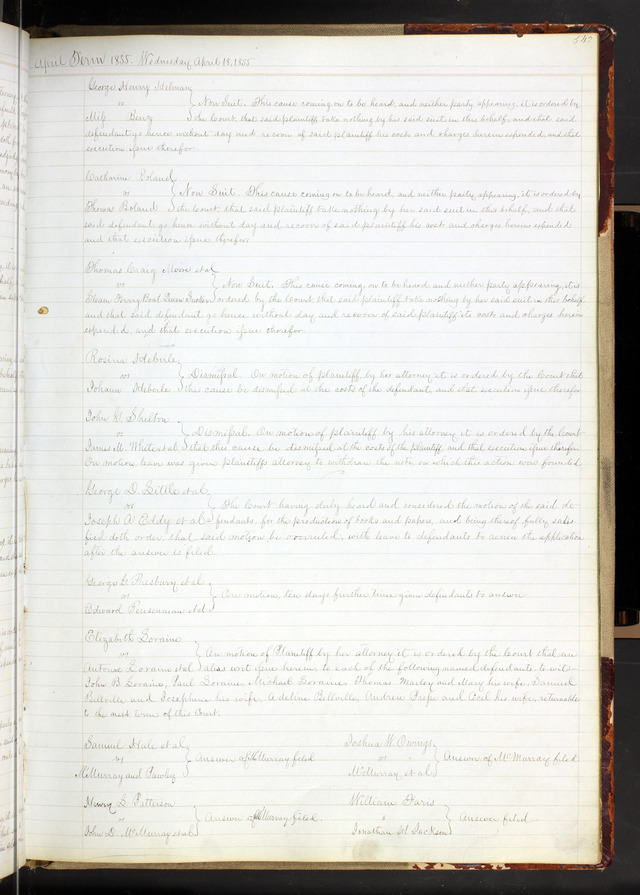 April Term 1855. Wednesday April 18, 1855
George Henry Idelman
vs } Non Suit. This cause coming on to be heard, and neither party appearing, it is ordered by
Berg the Court that said plaintiff take nothing by his said suit in this behalf, and that said
defendant go hence without day and recover of said plaintiff his costs and charges herein expended, and that
execution issue therefor
Catharine Boland
vs } Non Suit. This cause coming on to be heard, and neither party appearing, it is ordered by
Thomas Boland the Court that said plaintiff take nothing by her said suit in this behalf, and that
said defendant go hence without day and recover of said plaintiff his costs and charges herein expended
and that execution issue therefor
Thomas Craig Moore et al
vs } Non Suit. This cause coming on to be heard and neither party appearing, it is
Steam Ferry Boat ordered by the Court that said plaintiff take nothing by her said suit in this behalf
and that said defendant go hence without day and recover of said plaintiff its costs and charges herein
expended, and that execution issue therefor
Rosina Heberle
vs } Dismissal. On motion of plaintiff, by her attorney it is ordered by the Court that
Johann Heberle the cause be dismissed at the costs of the defendant, and that execution issue therefor
John G. Shelton
vs } Dismissal. On motion of plaintiff by his attorney it is ordered by the Court
James M. White et al that this cause be dismissed at the costs of the plaintiff and that execution issue therefor
On motion leave was given plaintiffs attorney to withdraw the note on which this action was founded
George D. Little et al
vs } The Court having duly heard and considered the motion of the said de-
Joseph A Eddy et al fendants, for the production of books and papers, and being thereof fully satis-
fied doth order, that said motion be overruled, with leave to defendants to renew the application
after the answer is filed
George G. Presbury et al
vs } On motion, ten days further time given defendants to answer
Edward et al
Elizabeth Loraine
vs } On motion of Plaintiff by her attorney it is ordered by the Court that an
Antoine Loraine et al alias writ issue herein, to each of the following named defendants, to wit:
John B Loraine, Paul Loraine, Michael Loraine, Thomas Marley and Mary his wife, Samuel
Bellville and Josephine his wife, Adeline Bellville, Andrew and his wife, returnable
to the next term of this Court.
Samuel Hale et al
vs } Answer of McMurray filed
McMurray and Pawley
Joshua W. Owings
vs } Answer of McMurray filed
McMurray et al
Henry L. Patterson
vs } Answer of McMurray filed.
John D. McMurray et al
William Faris
vs } Answer filed
Jonathan Jackson